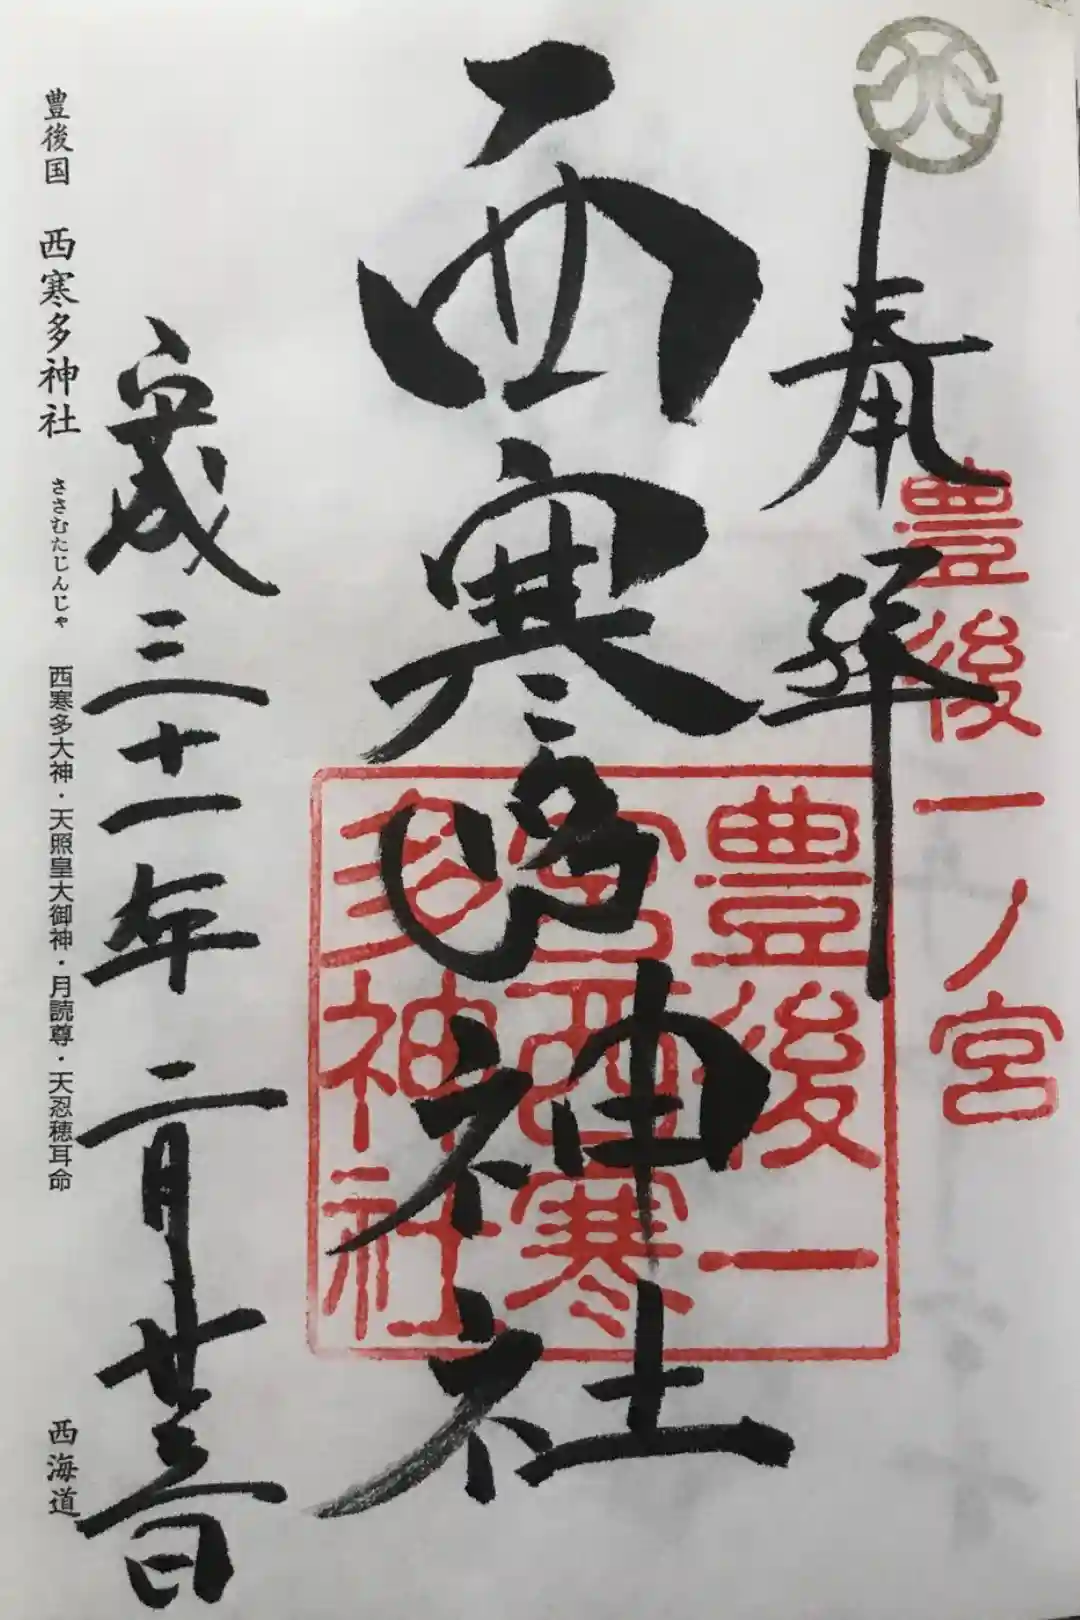 豊後一ノ宮
奉拝
西寒多神社
豊後一
宮西寒
多神社
平成三十一年二月廿三日
豊後国 西寒多神社 ささむたじんじゃ 西寒多大神・天照皇大御神・月読尊・天忍穂耳命 西海道